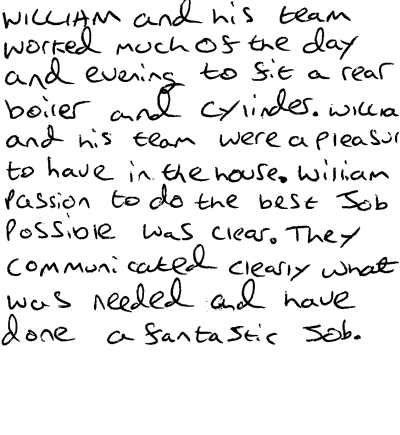 William and his team
worked much of the day
and evening to fit a rear
boiler and cylinder. Willia
and his team were a pleasur
to have in the house. William
Passion to do the best Job
Possible was clear. They
communicated clearly what
was needed and have
done a fantastic Job.